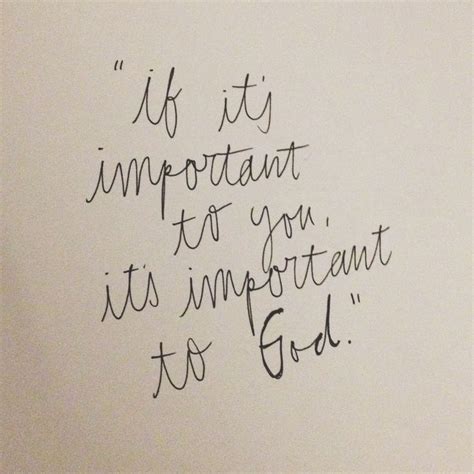 "if it's
important
to you,
it's important
to God."